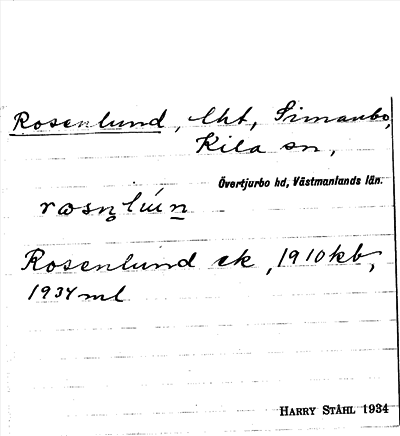 Rosenlund, lht, Simanbo,
Kila sn,
Övertjurbo hd, Västmanlands län.
Rosenlund ek, 1910 kb,
1934 ml
HARRY STÅHL 1934